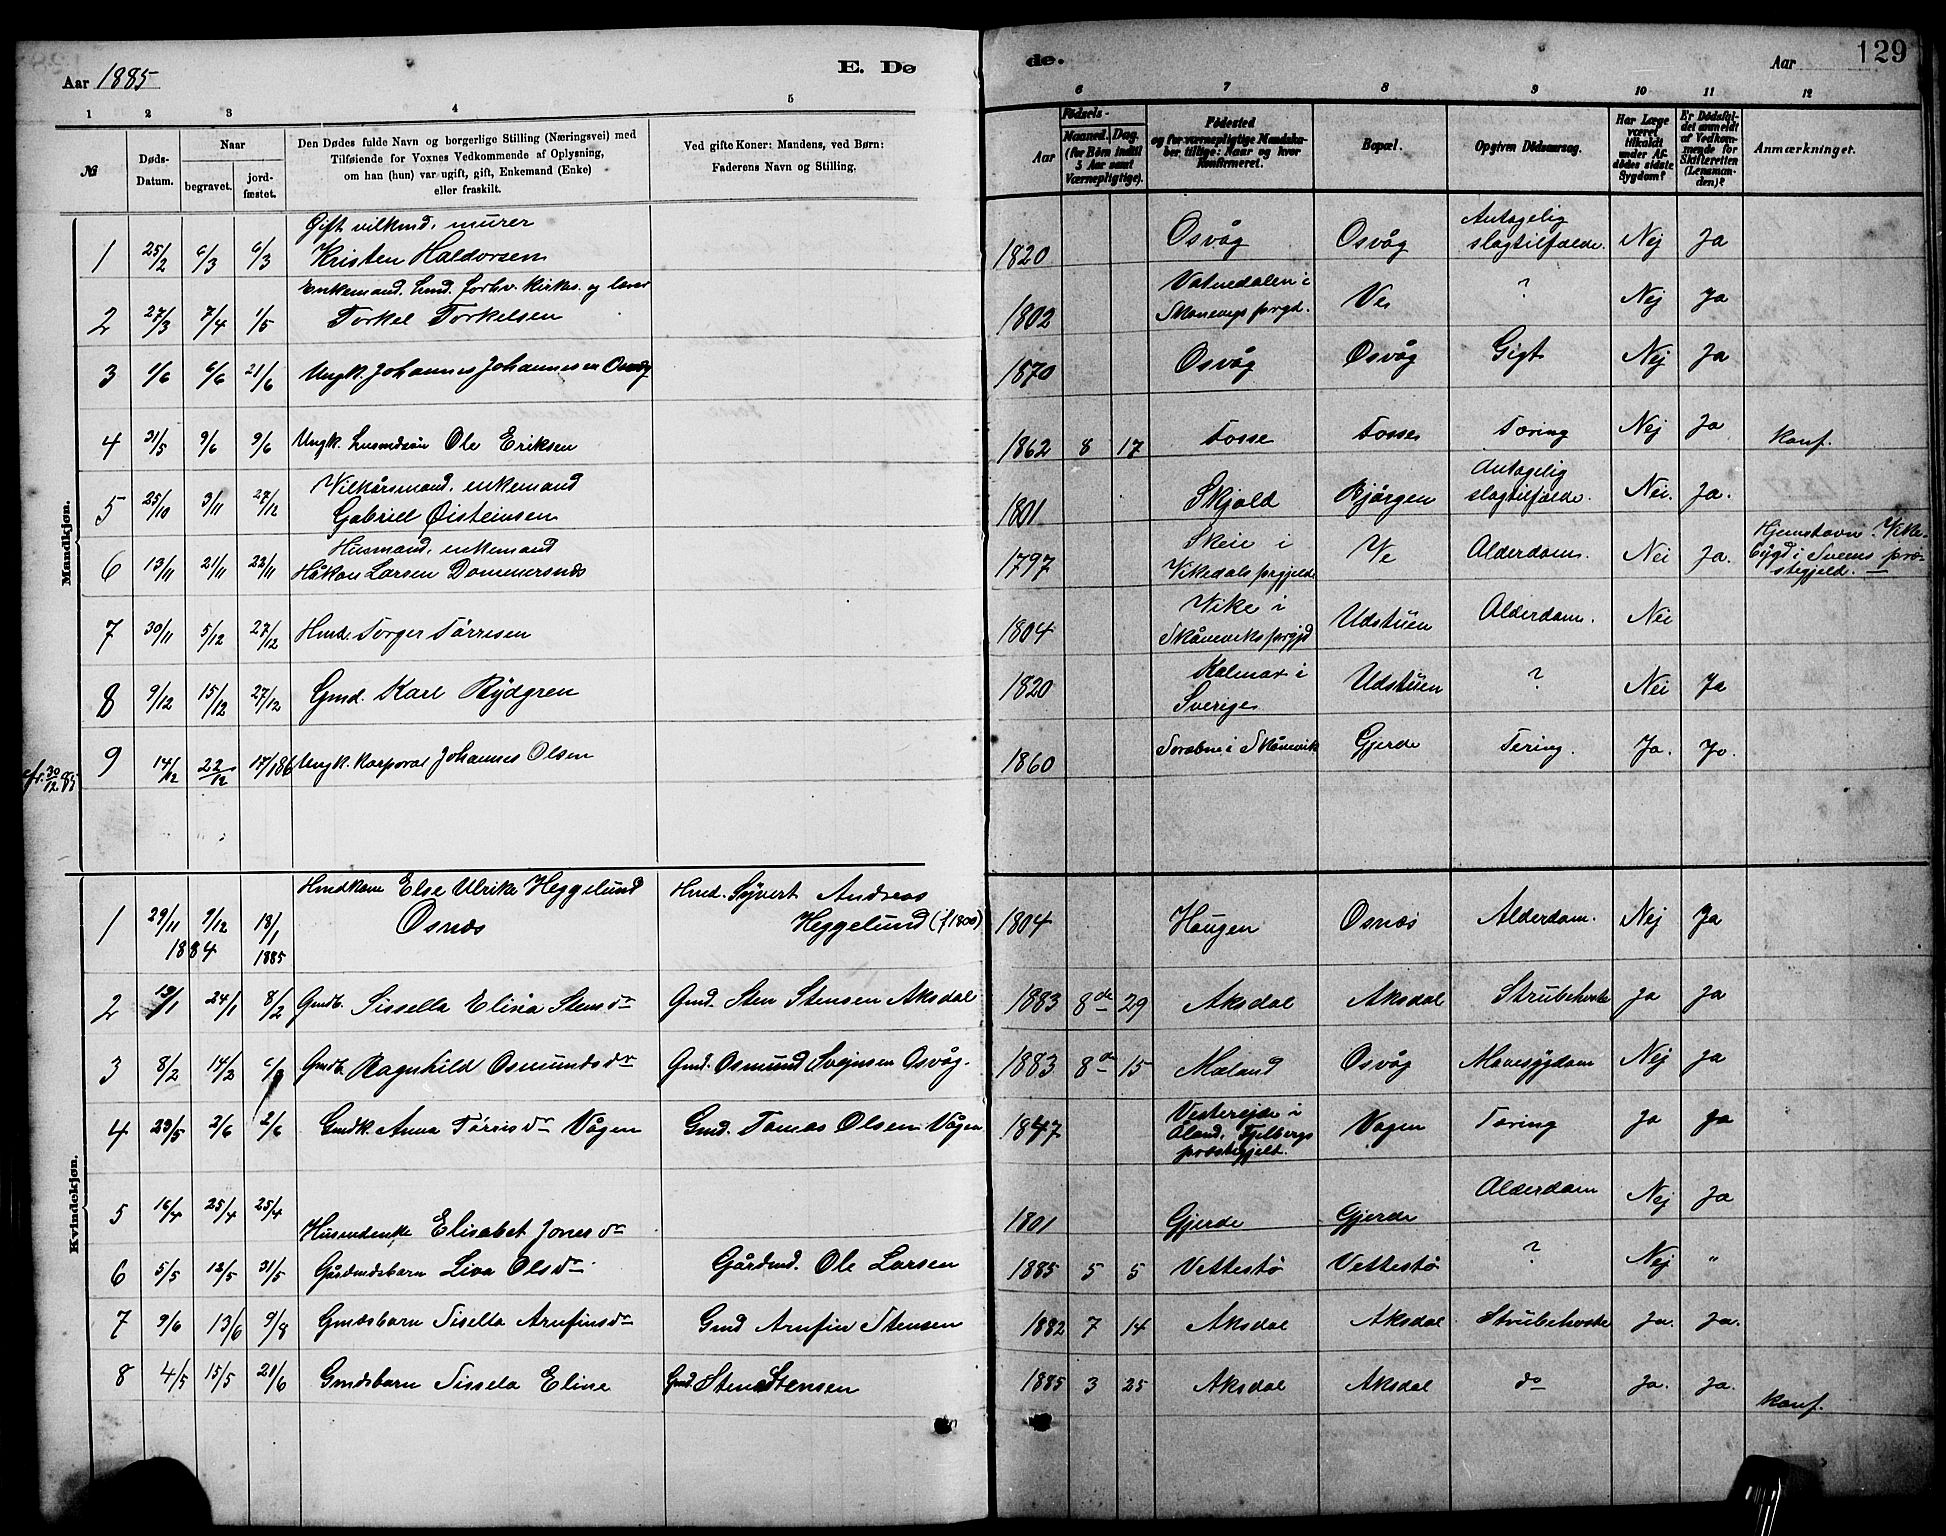 Aar 1885
E. Dø
de.
Aar
129
1 2 3 4 5 6 7 8 9 10 11 12
№
Døds-Datum.
Naar
begravet.
jord-fæstet.
Den Dødes fulde Navn og borgerlige Stilling (Næringsvei) med
Tilføiende for Voxnes Vedkommende af Oplysning,
om han (hun) var ugift, gift, Enkemand (Enke)
eller fraskilt.
Ved gifte Koner: Mandens, ved Børn:
Faderens Navn og Stilling.
Fødsels-
Aar
Maaned. Dag.
(for Børn indtil
5 Aar samt
Værnepligtige).
Fødested
og for værnepligtige Mandska-
ber tillige: Naar og hvor
Konfirmeret.
Bopæl.
Opgiven Dødsaarsag.
Har Læge
været
tilkaldt
under Af-
dødes sidste
Sygdom?
Er Dødsfal-
det anmeldt
af Vedkom-
mende for
Skifteretten
(Lensman-
den)?
Anmærkninger.
Mandkjøn.
Gift vilkmd. murer Antagelig
1 25/2 6/3 6/3 Kristen Haldorsen 1820 Osvåg Osvåg slagtilfælde. Nej Ja
Enkemand. Lmd. forhv. kirkes. og lærer Vatnedalen i
2 27/3 7/4 1/5 Torkel Torkelsen 1802 Skonevigs prgd. Ve ? Nej Ja
3 1/6 6/6 21/6 Ungk. Johannes Johannesen Osvåg 1870 Osvåg Osvåg Gigt Nej Ja
4 31/5 9/6 9/6 Ungk. Ole Eriksen 1862 8 17 Fosse Fosse Tæring Nej Ja konf.
Vilkårsmand, enkemand Antagelig
5 25/10 3/11 27/12 Gabriel Øisteinsen 1801 Skjold Bjørgen slagtilfælde. Nei. Ja.
Husmand, enkemand Skeie i Hjemstavn: Vike-
6 13/11 21/11 22/11 Håkon Larsen Dommersnes 1797 Vikedals prgjeld Ve Alderdom. Nei Ja. bygd i præ-
stegjeld.
Vike i
7 30/11 5/12 27/12 Hmd. Torger Tørresen 1804 Skåneviks prgjd Udstuen Alderdom. Nei
Kalmar i
8 9/12 15/12 27/12 Gmd. Karl Rydgren 1820 Sverige Udstuen ? Nei Ja
9 14/12 22/12 17/1 86 Ungk. Korporal Johannes Olsen 1860 i Skånevik Gjerde Tæring. Ja. Ja.
cfr. 30/12 85
Kvindekjøn.
Hmdkone Else Ulrike Heggelund Hmd. Syvert Andreas
1 29/11 9/12 1884 18/1 1885 Osnæs Heggelund (f 1800) 1804 Haugen Osnæs Alderdom. Nej Ja
2 13/1 24/1 8/2 Gmdb. Sissella Elisia Stensdr Gmd. Sten Stensen Aksdal 1883 8de 29 Aksdal Aksdal Strubehoste Ja Ja
3 8/2 14/2 Gmdb. Ragnhild Osmundsdr Gmd. Osmund Svejnsen Osvåg. 1883 8de 15 Mæland Osvåg Mavesygdom Nej Ja
4 23/5 2/6 2/6 Gmdk. Anna Tørrisdr Vågen Gmd. Tomas Olsen Vågen 1847 Vestereide i
Øland, Fjelbergs
præstegjelt. Vagen Tæring Ja Ja
5 16/4 25/4 25/4 Husmdenke Elisabet Jonesdr 1801 Gjerde Gjerde Alderdom Nej Ja
6 5/5 12/5 31/5 Gårdmdsbarn Liva Olsdr. Gårdmd. Ole Larsen 1885 5 5 Vettestø Vettestø ? Nej "
7 9/6 13/6 9/8 Gmdsbarn Sisella Arnfinsdr Gmd Arnfin Stensen 1882 7 14 Aksdal Aksdal Strubehoste Ja. Ja.
8 4/5 15/5 21/6 Gmdsbarn Sissela Eline Gmd. Sten Stensen 1885 3 25 Aksdal Aksdal do Ja. Ja. konf.